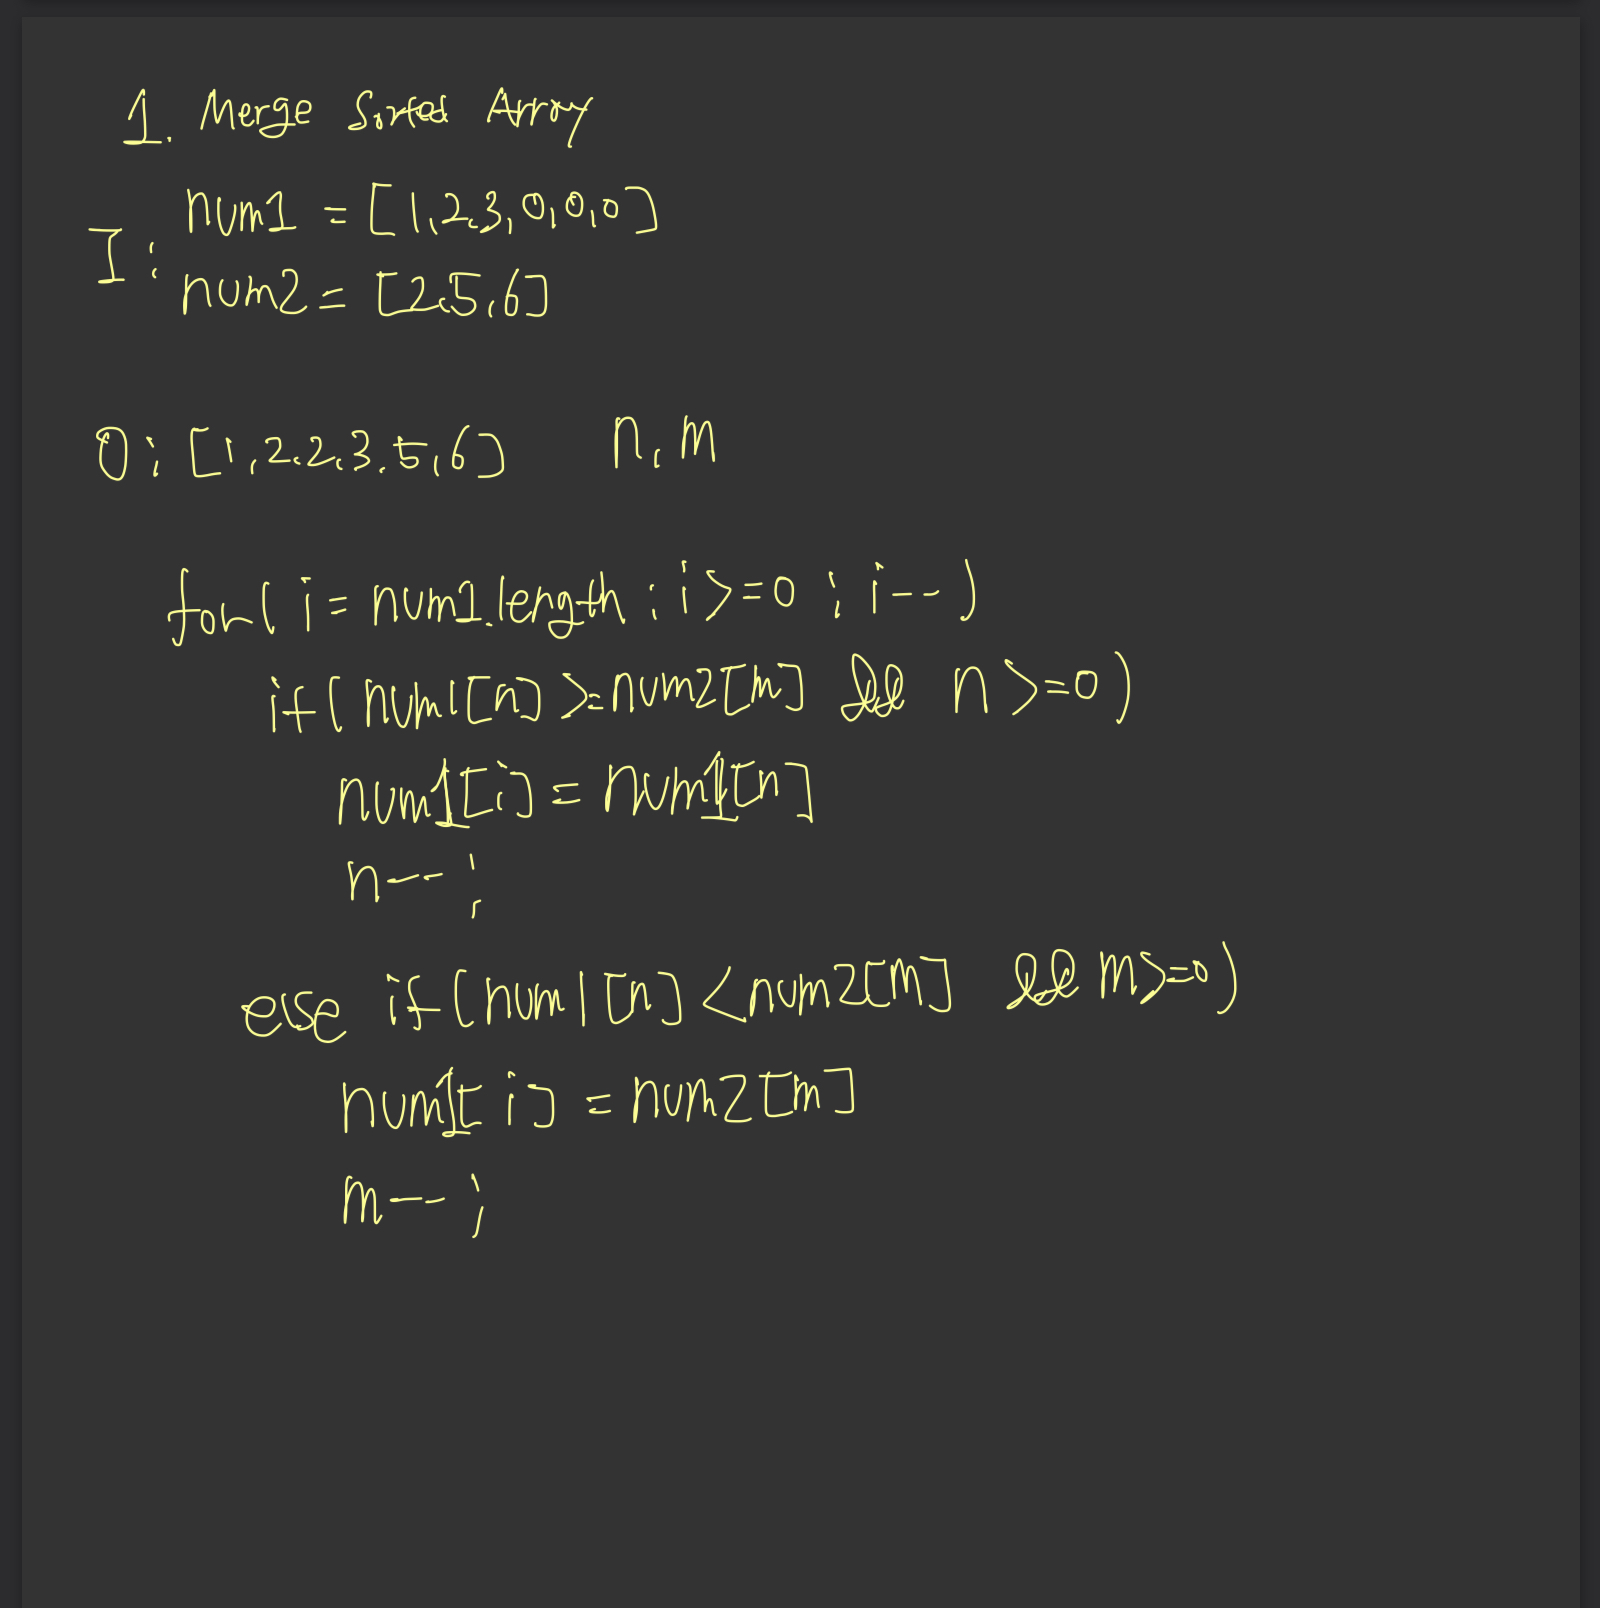 1. Merge Sorted Array
num1 = [1,2,3,0,0,0]
I:
num2 = [2,5,6]
O: [1,2,2,3,5,6] n, m
for( i = num1.length ; i >=0 ; i-- )
if( num1[n] >= num2[m] && n >=0 )
num1[i] = num1[n]
n-- ;
else if( num1[n] < num2[m] && m>=0 )
num1[i] = num2[m]
m-- ;